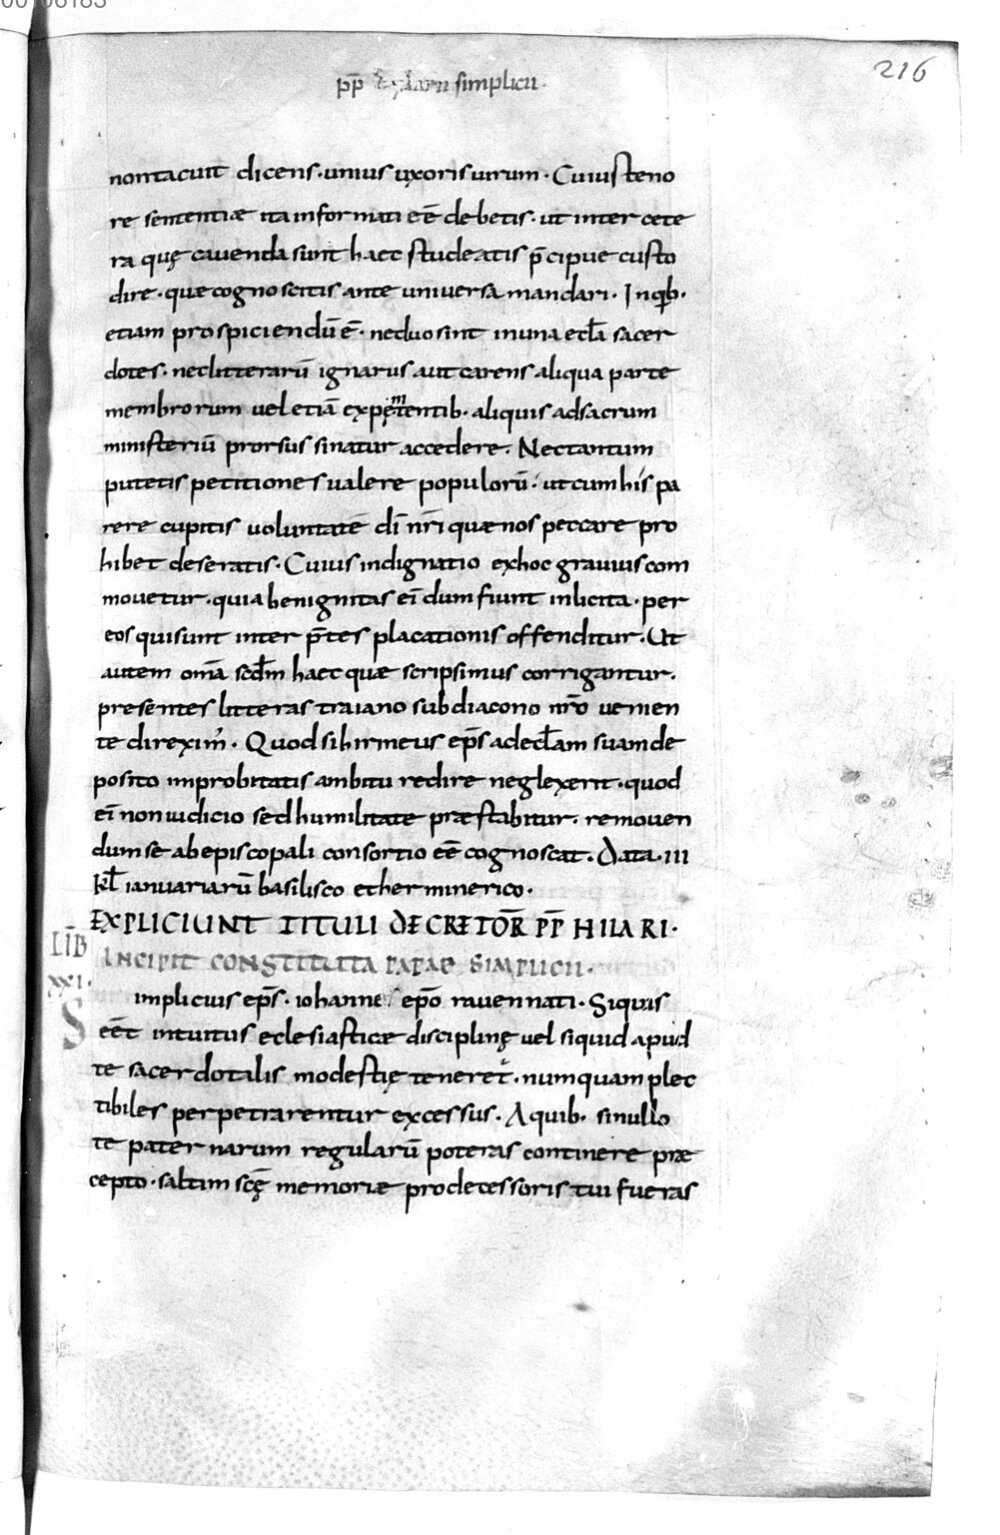 00106183
216
pp̄ simplicii.
non tacuit dicens. unius uxoris uirum. Cuius teno
re sententiæ ita informati eē debetis. ut inter cete
ra quę cauenda sunt haec studeatis p̄cipue custo
dire. quae cognoscitis ante universa mandari. Inquib.
etiam prospiciendū ē. ne duo sint in una eccl̄a sacer
dotes. nec litterarū ignarus aut carens aliqua parte
membrorum vel etiā expęmtentib. aliquis ad sacrum
ministeriū prorsus sinatur accedere. Nec tantum
putetis petitiones valere populorū. ut cum his pa
rere cupitis voluntatē dī nr̄i quae nos peccare pro
hibet deseratis. Cuius indignatio ex hoc gravius com
movetur. quia benignitas eī dum fiunt inlicita. per
eos qui sunt inter p̄tes placationis offenditur. Ut
autem om̄a scd̄m haec quae scripsimus corrigantur.
presentes litteras traiano subdiacono nr̄o venien
te direxim'. Quod si hirineus ep̄s ad eccl̄am suam de
posito improbitatis ambitu redire neglexerit. quod
eī non iudicio sed humilitate præstabitur. removen
dum se ab episcopali consortio eē cognoscat. Data. III
kl̄ ianuariarū basilisco et herminerico.
EXPLICIUNT TITULI DECRETOR̄ PP̄ HILARI.
LIB̄ XXI.
INCIPIT CONSTITUTA PAPAE SIMPLICII.
Simplicius ep̄s. iohanne ep̄o ravennati. Si quis
eēt intuitus eclesiasticae disciplinę vel si quid apud
te sacerdotalis modestię teneret. numquam plec
tibiles perpetrarentur excessus. A quib. si nullo
te paternarum regularū poteras continere præ
cepto. saltim scę̄ memoriæ prodecessoris tui fueras